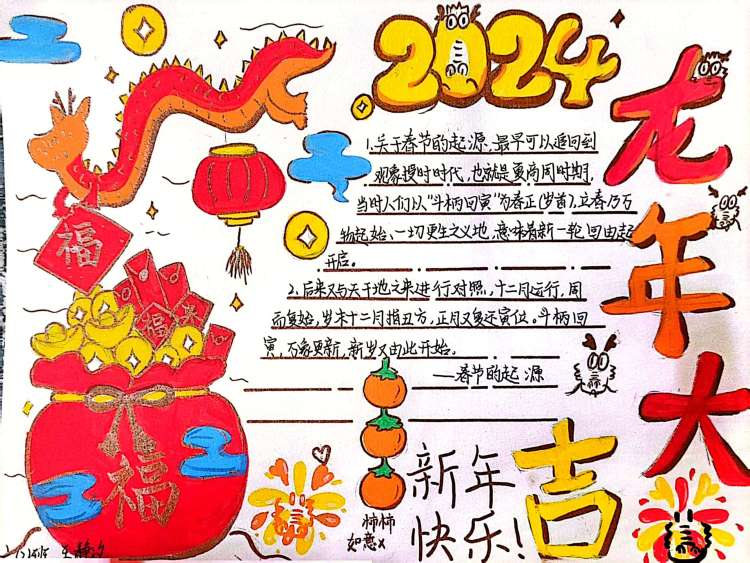 2024
龙年大
吉
1.关于春节的起源,最早可以追回到
观象授时时代,也就是更高同时期,
当时人们以"斗柄回寅"为春正(岁首),立春
物起始、一切更生之义地,意味着新一轮回由起
开启。
2.后来又与天干地支来进行对照,十二月运行,周
而复始,岁末十二月指丑方,正月又复还寅位。斗柄回
寅,万象更新,新岁又由此开始。
——春节的起源
福
福
福
新年
快乐!
柿柿
如意